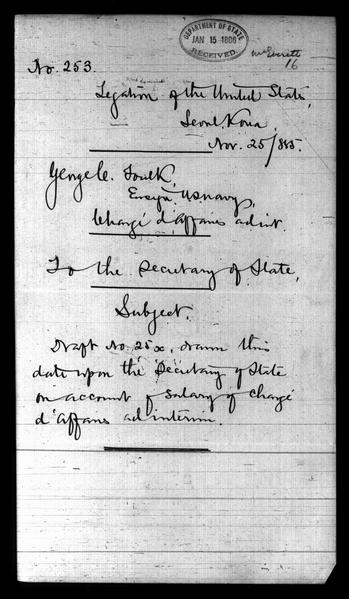 DEPARTMENT OF STATE
JAN 15 1886
RECEIVED
McEverett
16
No. 253.
Legation of the United States,
Seoul, Korea,
Nov. 25/885.
George C. Foulk,
Ensign, U.S. Navy,
Chargé d'Affaires ad int.
To the Secretary of State,
Subject.
Draft No. 25x, drawn this
date upon the Secretary of State
on account of salary of Chargé
d'Affaires ad interim.